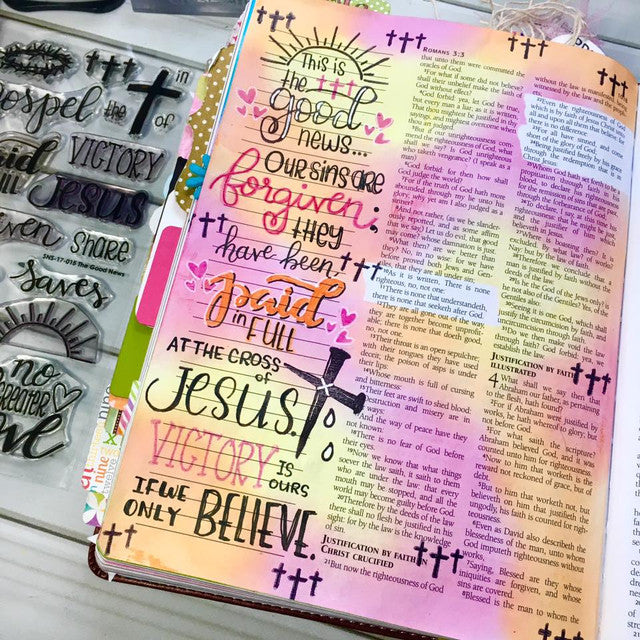 in
Gospel the
of
VICTORY
Jesus
Share
SNS-17-018 The Good News
Saves
no
GREATER
love
This is
the
good
news...
OUR SINS ARE
forgiven;
THEY
have been
paid
in FULL
AT THE CROSS
of
JESUS.
VICTORY IS
OURS
IF WE
ONLY BELIEVE.
ROMANS 3:3
that unto them were committed the
oracles of God.
³For what if some did not believe?
shall their unbelief make the faith of
God without effect?
⁴God forbid: yea, let God be true,
but every man a liar; as it is written,
That thou mightest be justified in thy
sayings, and mightest overcome when
thou art judged.
⁵But if our unrighteousness com-
mend the righteousness of God, what
shall we say? Is God unrighteous
who taketh vengeance? (I speak as a
man)
⁶God forbid: for then how shall
God judge the world?
⁷For if the truth of God hath more
abounded through my lie unto his
glory; why yet am I also judged as a
sinner?
⁸And not rather, (as we be slander-
ously reported, and as some affirm
that we say,) Let us do evil, that good
may come? whose damnation is just.
⁹What then? are we better than
they? No, in no wise: for we have
before proved both Jews and Gen-
tiles, that they are all under sin;
¹⁰As it is written, There is none
righteous, no, not one:
¹¹There is none that understandeth,
there is none that seeketh after God.
¹²They are all gone out of the way,
they are together become unprofit-
able; there is none that doeth good,
no, not one.
¹³Their throat is an open sepulchre;
with their tongues they have used
deceit; the poison of asps is under
their lips:
¹⁴Whose mouth is full of cursing
and bitterness:
¹⁵Their feet are swift to shed blood:
¹⁶Destruction and misery are in
their ways:
¹⁷And the way of peace have they
not known:
¹⁸There is no fear of God before
their eyes.
¹⁹Now we know that what things
soever the law saith, it saith to them
who are under the law: that every
mouth may be stopped, and all the
world may become guilty before God.
²⁰Therefore by the deeds of the law
there shall no flesh be justified in his
sight: for by the law is the knowledge
of sin.
JUSTIFICATION BY FAITH IN
CHRIST CRUCIFIED
²¹But now the righteousness of God
without the law is manifested, being
witnessed by the law and the prophets;
²²Even the righteousness of God
which is by faith of Jesus Christ unto
all and upon all them that believe: for
there is no difference:
²³For all have sinned, and come
short of the glory of God;
²⁴Being justified freely by his grace
through the redemption that is in
Christ Jesus:
²⁵Whom God hath set forth to be a
propitiation through faith in his
blood, to declare his righteousness
for the remission of sins that are past,
through the forbearance of God;
²⁶To declare, I say, at this time his
righteousness: that he might be just,
and the justifier of him which
believeth in Jesus.
²⁷Where is boasting then? It is
excluded. By what law? of works?
Nay: but by the law of faith.
²⁸Therefore we conclude that a
man is justified by faith without the
deeds of the law.
²⁹Is he the God of the Jews only?
is he not also of the Gentiles? Yes, of the
Gentiles also:
³⁰Seeing it is one God, which shall
justify the circumcision by faith, and
uncircumcision through faith.
³¹Do we then make void the law
through faith? God forbid: yea, we
establish the law.
JUSTIFICATION BY FAITH
ILLUSTRATED
4 What shall we say then that
Abraham our father, as pertaining
to the flesh, hath found?
²For if Abraham were justified by
works, he hath whereof to glory; but
not before God.
³For what saith the scripture?
Abraham believed God, and it was
counted unto him for righteousness.
⁴Now to him that worketh is the
reward not reckoned of grace, but of
debt.
⁵But to him that worketh not, but
believeth on him that justifieth the
ungodly, his faith is counted for righ-
teousness.
⁶Even as David also describeth the
blessedness of the man, unto whom
God imputeth righteousness without
works,
⁷Saying, Blessed are they whose
iniquities are forgiven, and whose
sins are covered.
⁸Blessed is the man to whom the